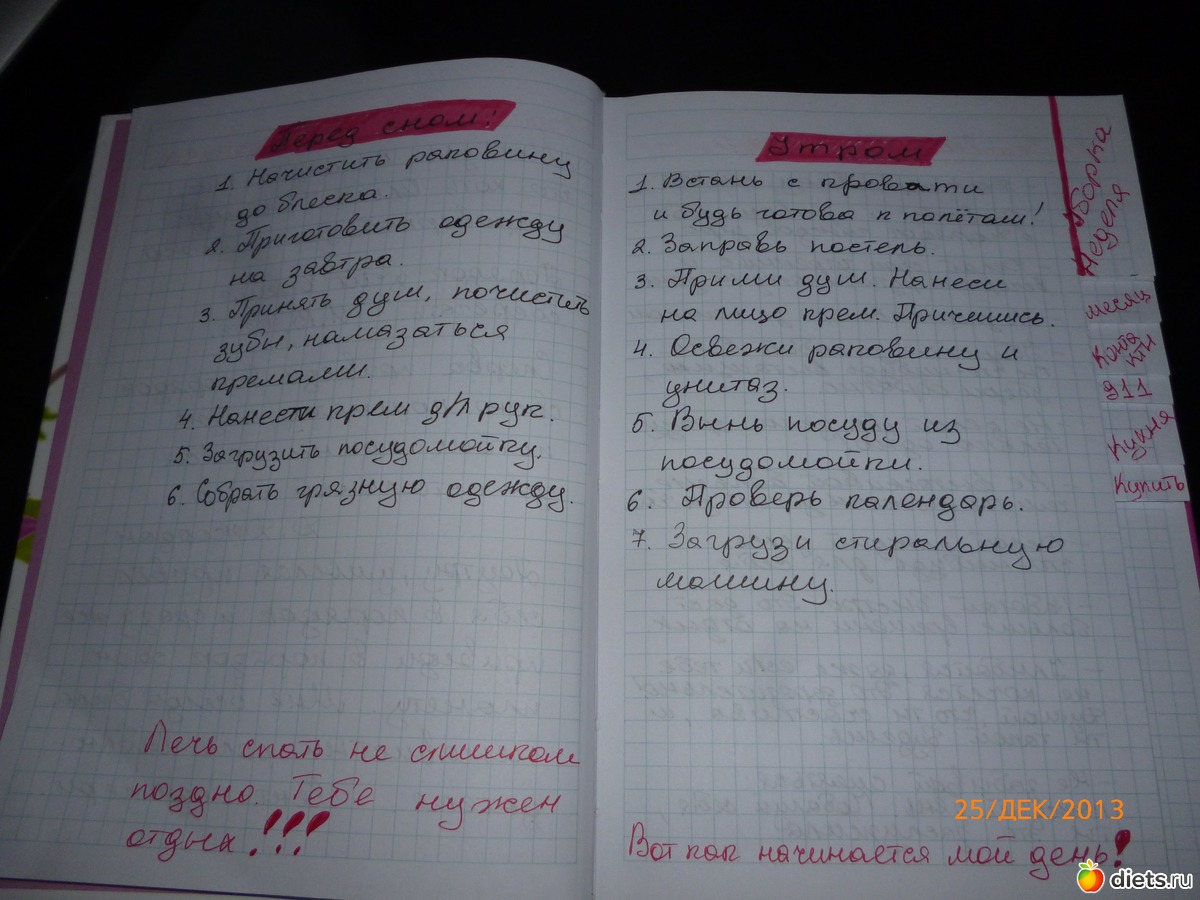 Перед сном!
1. Начистить раковину
до блеска.
2. Приготовить одежду
на завтра.
3. Принять душ, почистить
зубы, намазаться
кремами.
4. Нанести крем д/л рук.
5. Загрузить посудомойку.
6. Собрать грязную одежду.
Лечь спать не слишком
поздно. Тебе нужен
отдых!!!
Утром
1. Встань с кровати
и будь готова к полётам!
2. Заправь постель.
3. Прими душ. Нанеси
на лицо крем. Причешись.
4. Освежи раковину и
унитаз.
5. Вынь посуду из
посудомойки.
6. Проверь календарь.
7. Загрузи стиральную
машину.
Вот как начинается мой день!
Уборка
Неделя
месяц
Конта
кты
911
Кухня
Купить
25/ДЕК/2013
diets.ru